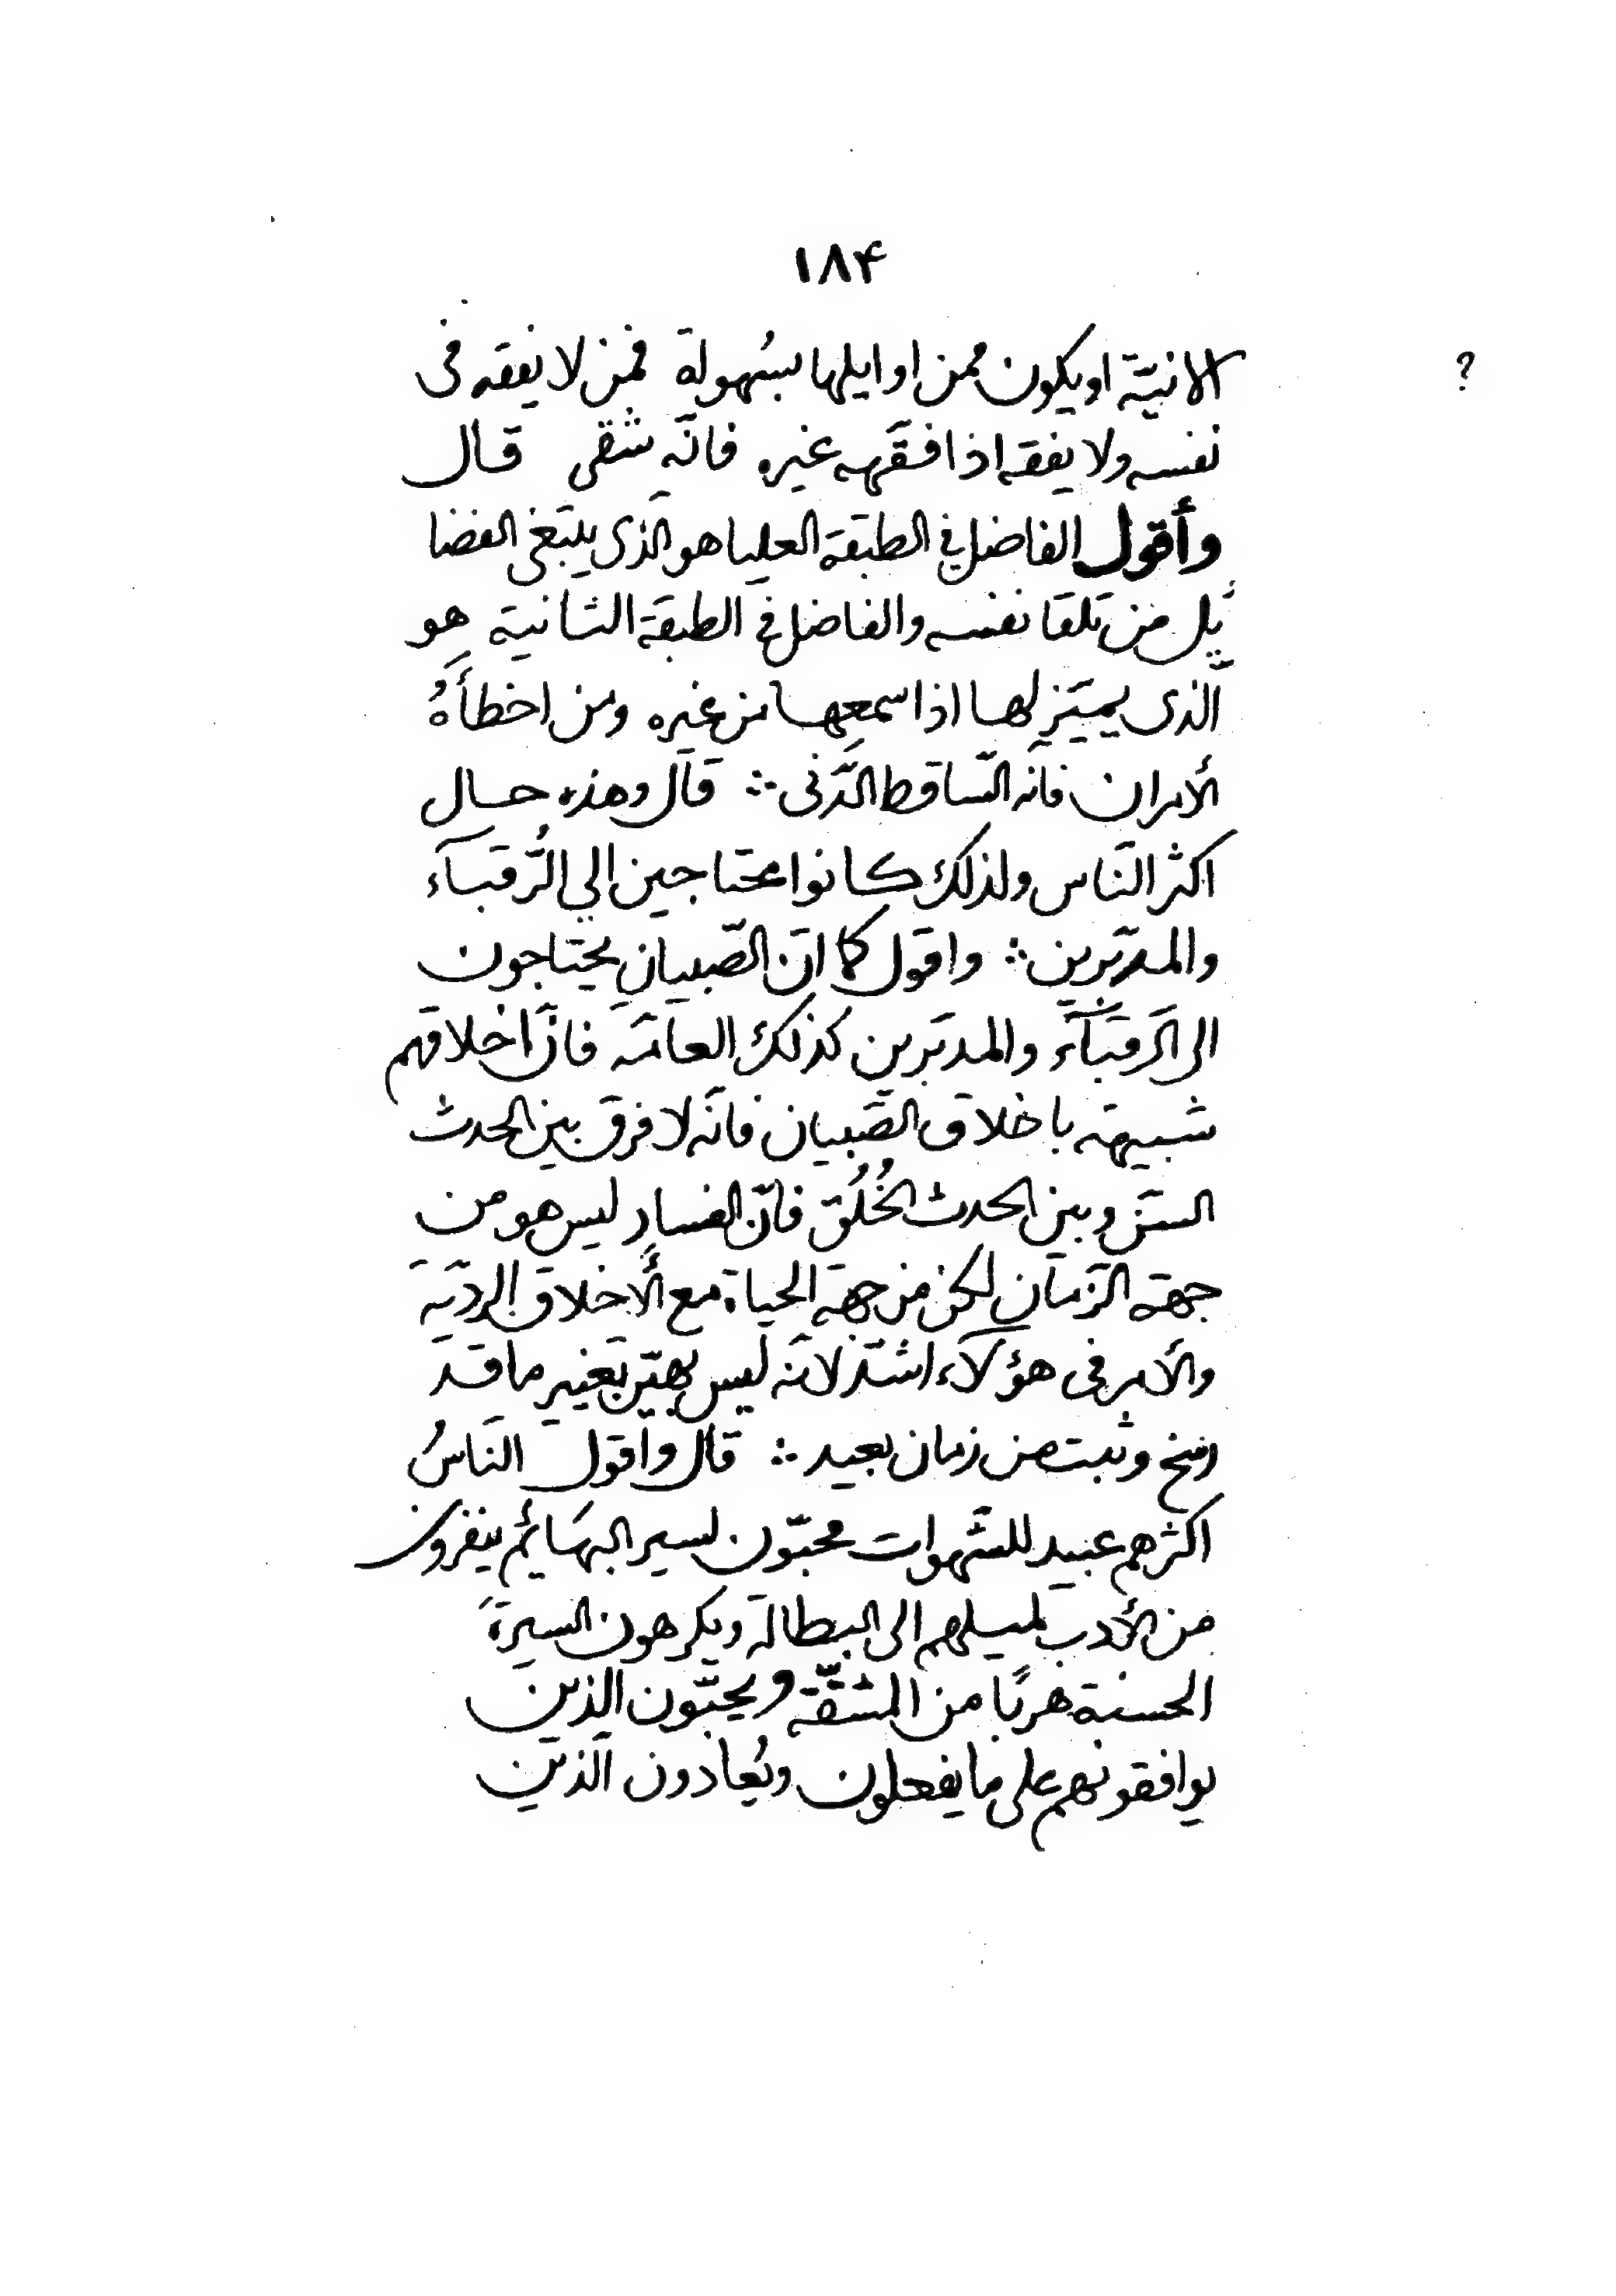 ۱۸۴
الانيّة او يكون ممن اوايلها بسُهولة فمن لا يفقه فى
?
نفسه ولا يفقه اذا فقّهه غيره فانّه شقى قال
وأقول الفاضل في الطبقة العليا هو الذى يبتغى الفضا
يل من تلقا نفسه والفاضل فى الطبقة الثانية هو
الّذى يميّز لها اذا سمعها من غيره ومن اخطأهُ
الأمران فانّه السّاقط الدّنى ∴ قال وهذه حال
اكثر النّاس ولذلك كانوا محتاجين الي الرُّقبآء
والمدبّرين ∴ واقول كما انّ الصّبيان يحتاجون
الى الرّقبآء والمدبّرين كذلك العامّه فانّ اخلاقهم
شبيهة باخلاق الصّبيان فانّه لا فرق بين الحدث
السّن وبين الحدث الخُلُق فانّ الفساد ليس هو من
جهة الزّمان لكن من جهة الحياة مع الأخلاق الرديّة
والأمر فى هؤلآء اشدّ لانّه ليس بهيّن تغيير ما قد
رسخ وثبت من زمان بعيد ∴ قال واقول النّاسُ
اكثرهم عبيد للشّهوات محبّون لسير البهائم ينفرون
من الأدب لميلهم الى البطالة ويكرهون السيرة
الحسنة هربًا من المشقّة ويحبّون الذين
يوافقونهم على ما يفعلون ويُعادون الّذين